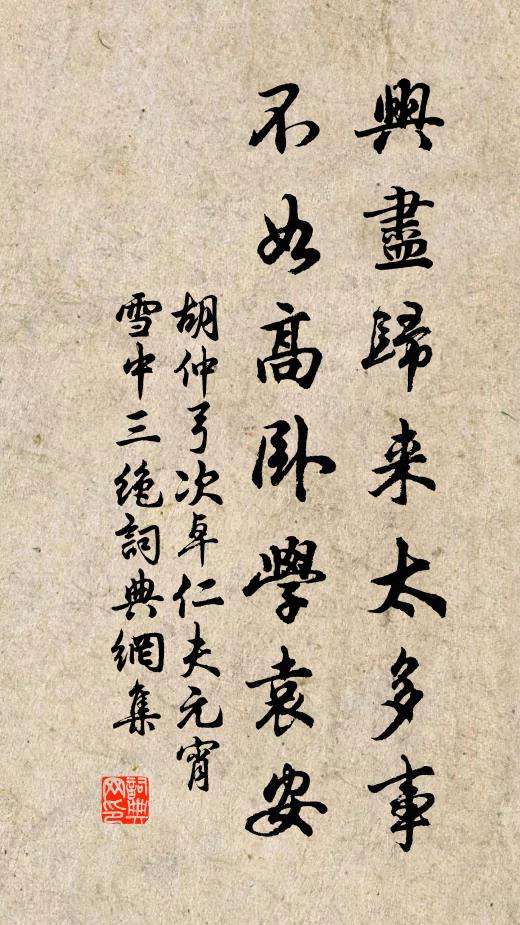 興盡歸来太多事
不如高卧學袁安
胡仲弓次卓仁夫元宵
雪中三绝詞典網集
詞典
网印